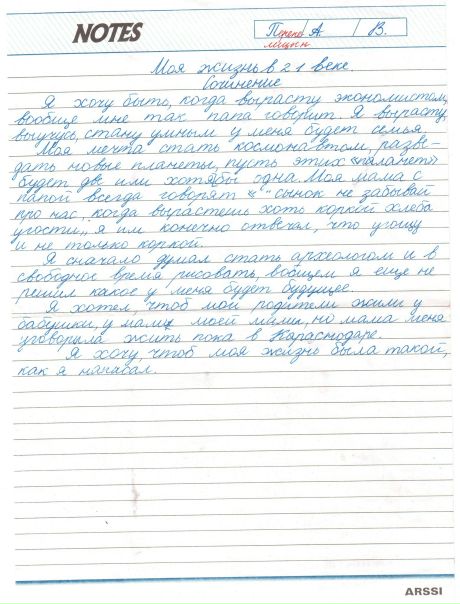 NOTES
Перепелицын А В.
Моя жизнь в 21 веке.
Сочинение
Я хочу быть, когда вырасту экономистом,
вообще мне так папа говорит. Я вырасту,
выучусь, стану умным у меня будет семья.
Моя мечта стать космонавтом, разве-
дать новые планеты, пусть этих «планет»
будет две или хотябы одна. Моя мама с
папой всегда говорят „ " сынок не забывай
про нас, когда вырастешь хоть коркой хлеба
угости„, я им конечно отвечал, что угощу
и не только коркой.
Я сначало думал стать археологом и в
свободное время рисовать, вобщем я еще не
решил какое у меня будет будущее.
Я хотел, чтоб мои родители жили у
бабушки, у мамы моей мамы, но мама меня
уговорила жить пока в Караснодаре.
Я хочу, чтоб моя жизнь была такой,
как я начасал.
ARSSI